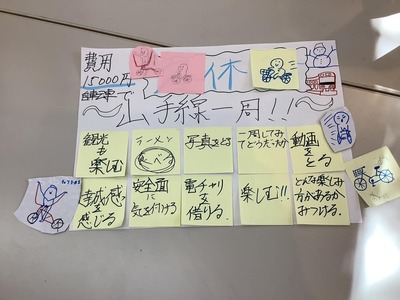 費用
15000円
休
自転車で
〜山手線一周!!〜
観光
も
楽しむ
ラーメン
食べる
写真をとる
一周してみて
どうだったか
動画
をとる
達成感
を
感じる
安全面
に
気を付ける
電チャリ
を
借りる。
楽しむ!!
どんな楽しみ
方があるか
みつける。